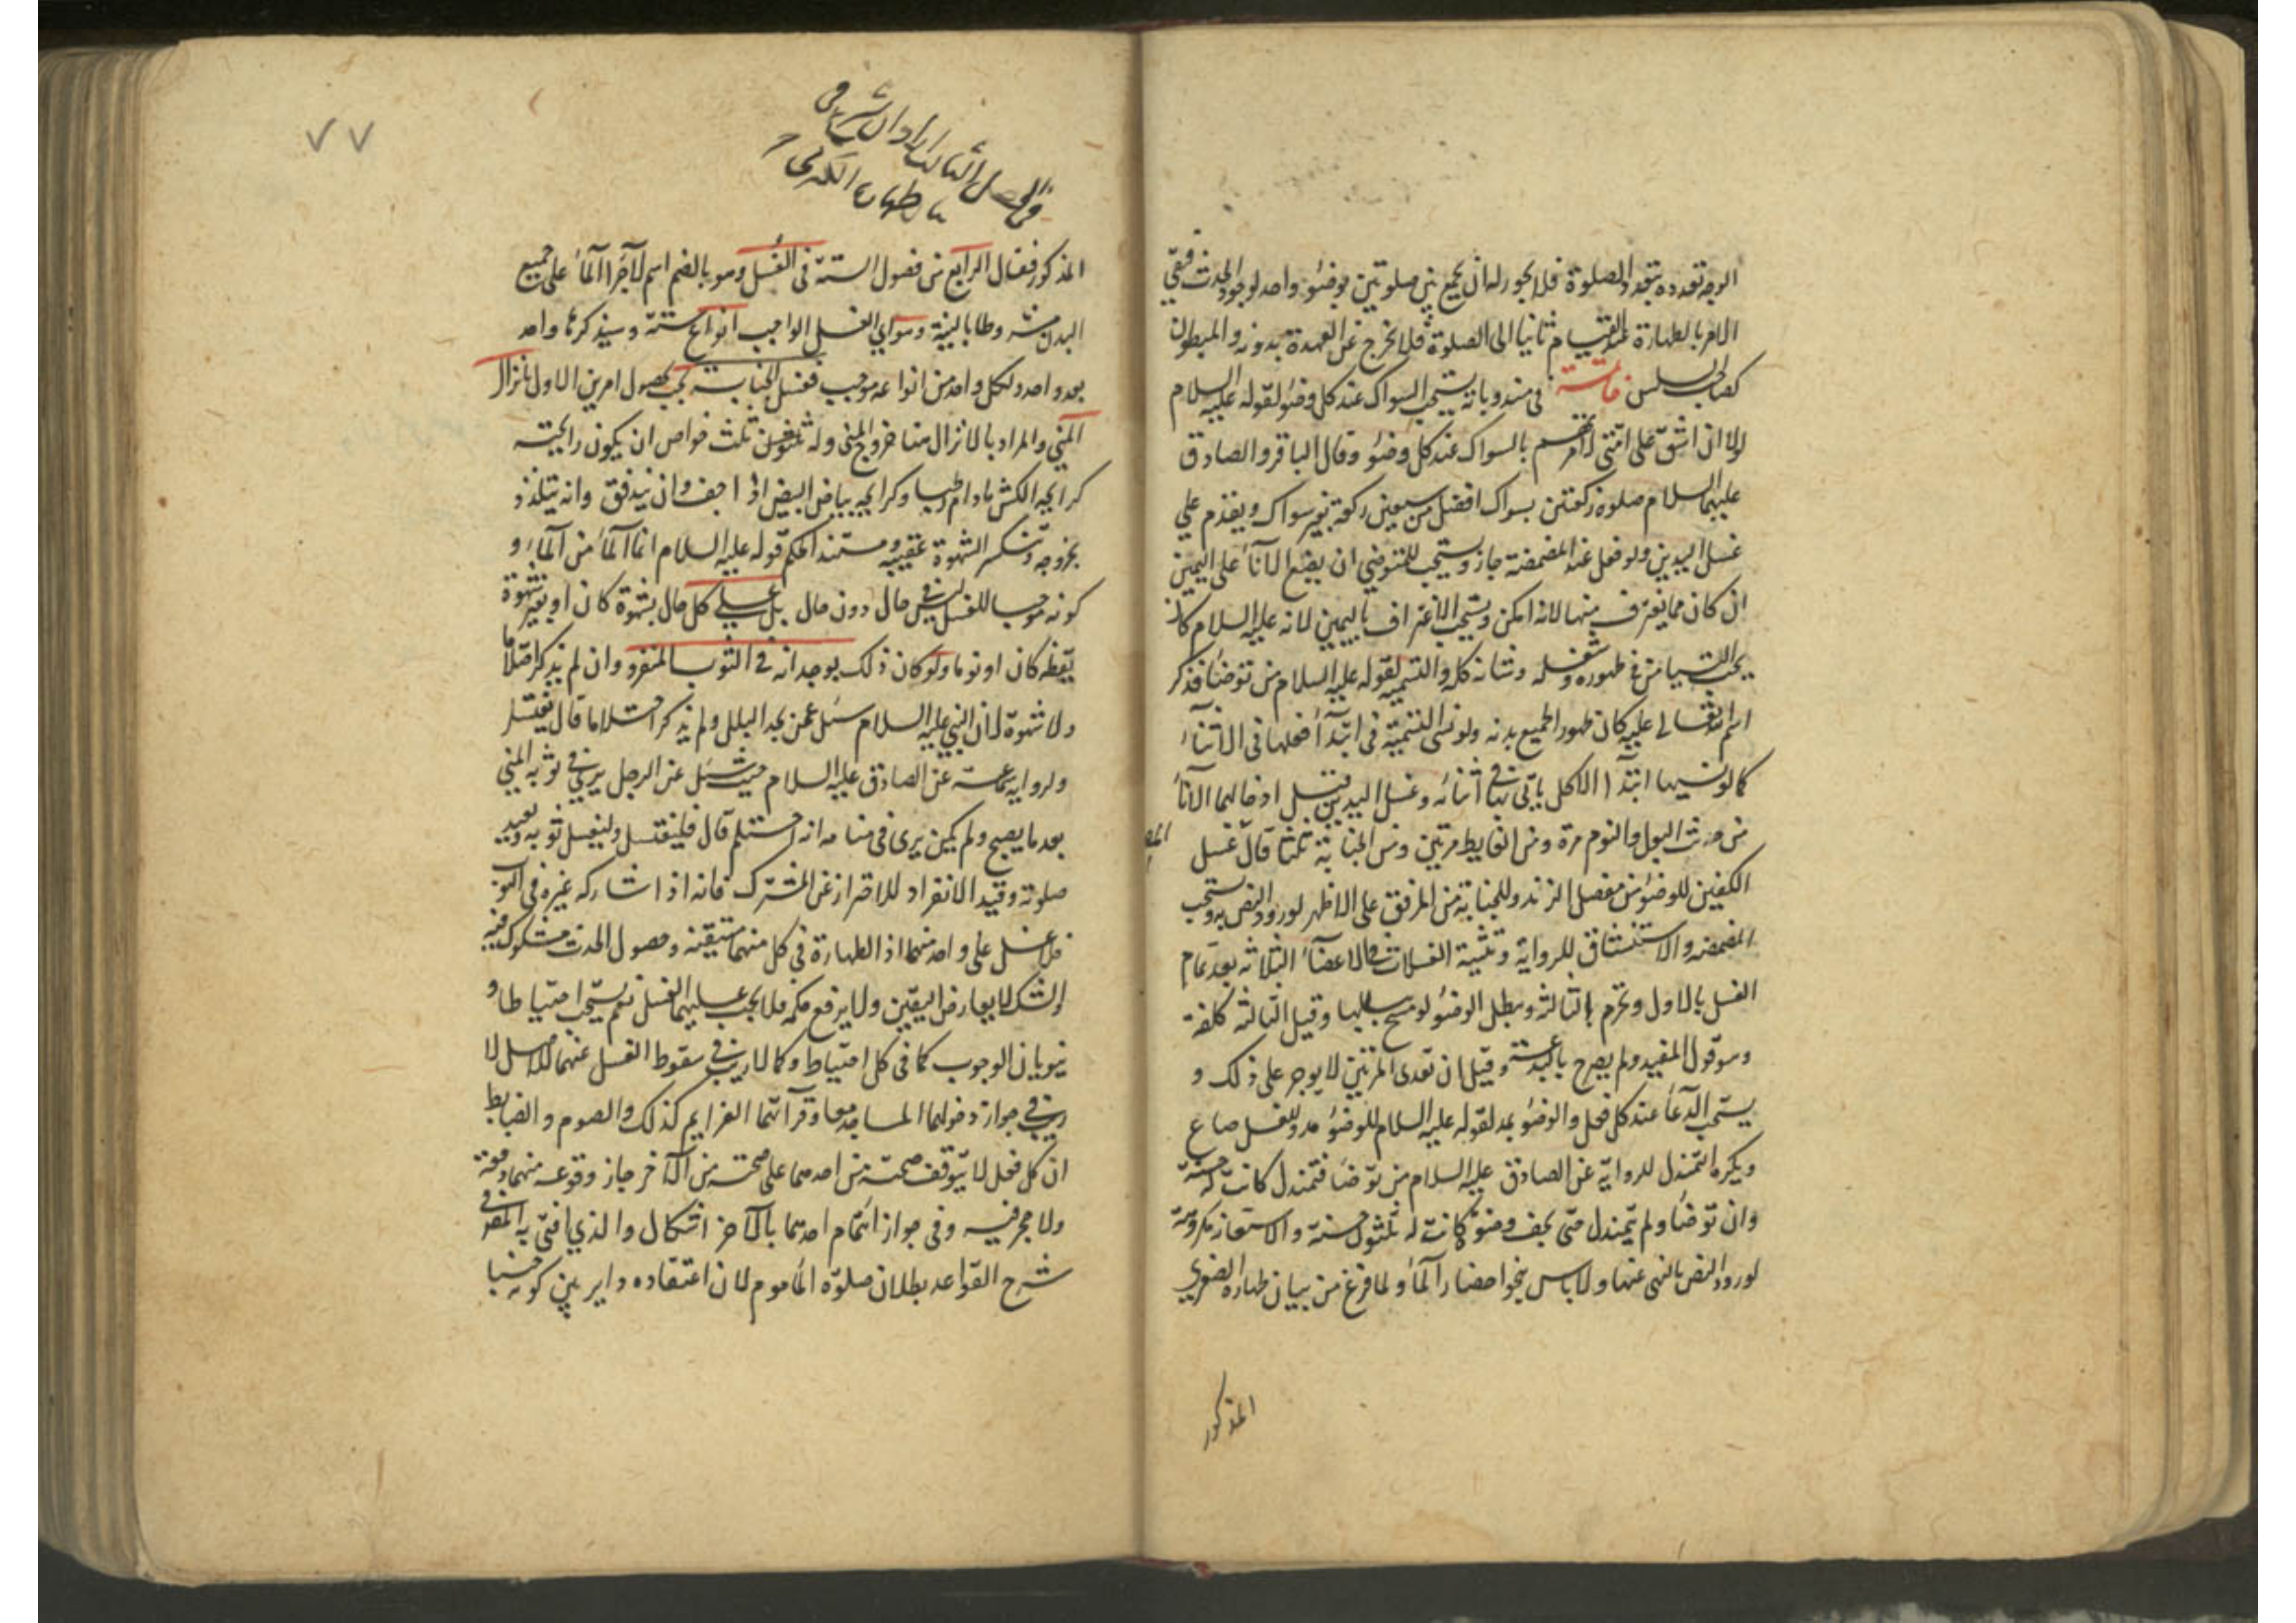 الوجه تعدده بتعدد الصلوة فلا يجوز له ان يجمع بين صلوتين بوضوء واحد لوجود الحدث فبقي
الامر بالطهارة عند القيام ثانيا الى الصلوة فلا يخرج عن العهدة بدونه والمبطون
كصاحب السلس خاتمة في مندوباته يستحب السواك عند كل وضوء لقوله عليه السلام
لولا ان اشق على امتي لامرتهم بالسواك عند كل وضوء وقال الباقر والصادق
عليهما السلام صلوة ركعتين بسواك افضل من سبعين ركعة بغير سواك ويقدم على
غسل اليدين ولو فعل عند المضمضة جاز ويستحب للمتوضي ان يضع الاناء على اليمين
ان كان مما يغترف منها لانه امكن ويستحب الاغتراف باليمين لانه عليه السلام كان
يحب التيامن في طهوره وشغله وشانه كله والتسمية لقوله عليه السلام من توضأ فذكر
اسم الله تعالى عليه كان طهورا لجميع بدنه ولو نسى التسمية في ابتدآ فعلها في الاثناء
كما لو نسيها ابتدآ الاكل ياتى بها في اثنائه وغسل اليدين قبل ادخالهما الاناء
من حدث البول والنوم مرة ومن الغايط مرتين ومن الجنابة ثلثا قال غسل
الكفين للوضوء من مفصل الزند وللجنابة من المرفق على الاظهر لورود النص به ويستحب
المضمضه والاستنشاق للرواية وتثنية الغسلات في الاعضاء الثلاثه بعد تمام
الغسل بالاول وتحرم الثالثه ويبطل الوضوء لو مسح ببللها وقيل الثالثه كلفة
وهو قول المفيد ولم يصرح بالبدعة وقيل ان تعدى المرتين لا يوجر على ذلك و
يستحب الدعآ عند كل فعل والوضوء بمد لقوله عليه السلام للوضوء مد وللغسل صاع
ويكره التمندل للرواية عن الصادق عليه السلام من توضأ فتمندل كانت له حسنة
وان توضأ ولم يتمندل حتى يجف وضوؤه كانت له ثلثون حسنة والاستعانه مكروهة
لورود النص بالنهى عنها ولا باس بنحو احضار الماء ولما فرغ من بيان طهاره الصغرى
المذكور
٧٧
الفصل الثالث
الطهارة الكبرى
المذكور فقال الرابع من فصول الستة في الغسل وهو بالضم اسم لاجرا الماء على جميع
البدن مشروطا بالنية وهو اي الغسل الواجب انواع ستة وسيذكرها واحد
بعد واحد ولكل واحد من انواعه موجب فغسل الجنابة يجب بحصول امرين الاول انزال
المني والمراد بالانزال هنا خروج المني وله ثلث خواص ان يكون رايحته
كرايحه الكش مادام رطبا وكرايحه بياض البيض اذا جف وان يتدفق وانه يتلذذ
بخروجه وتنكسر الشهوة عقيبه ومستند الحكم قوله عليه السلام انما الماء من الماء و
كونه موجبا للغسل ليس في حال دون حال بل على كل حال بشهوة كان او بغير شهوة
يقظه كان او نوما ولو كان ذلك بوجدانه في الثوب المنفرد وان لم يذكر احتلاما
ولا شهوة لان النبي عليه السلام سئل عمن يجد البلل ولم يذكر احتلاما قال يغتسل
ولرواية سماعة عن الصادق عليه السلام حيث سئل عن الرجل يرى في ثوبه المني
بعد ما يصبح ولم يكن يرى في منامه انه احتلم قال فليغتسل وليغسل ثوبه ويعيد
صلوته وقيد الانفراد للاحتراز عن المشترك فانه اذا شاركه غيره في الثوب
فلا غسل على واحد منهما اذ الطهارة في كل منهما متيقنه وحصول الحدث مشكوك فيه
والشك لا يعارض اليقين ولا يرفع حكمه فلا يجب عليهما الغسل نعم يستحب احتياطا و
ينويان الوجوب كما في كل احتياط وكما لا ريب في سقوط الغسل عنهما للاصل لا
ريب في جواز دخولهما المساجد معا وقرآتهما العزايم كذلك والصوم والضابط
ان كل فعل لا يتوقف صحته من احدهما على صحته من الآخر جاز وقوعه منهما دفعة
ولا حجر فيه وفي جواز ائتمام احدهما بالآخر اشكال والذي افتى به المص في
شرح القواعد بطلان صلوة المأموم لان اعتقاده داير بين كونه جنبا